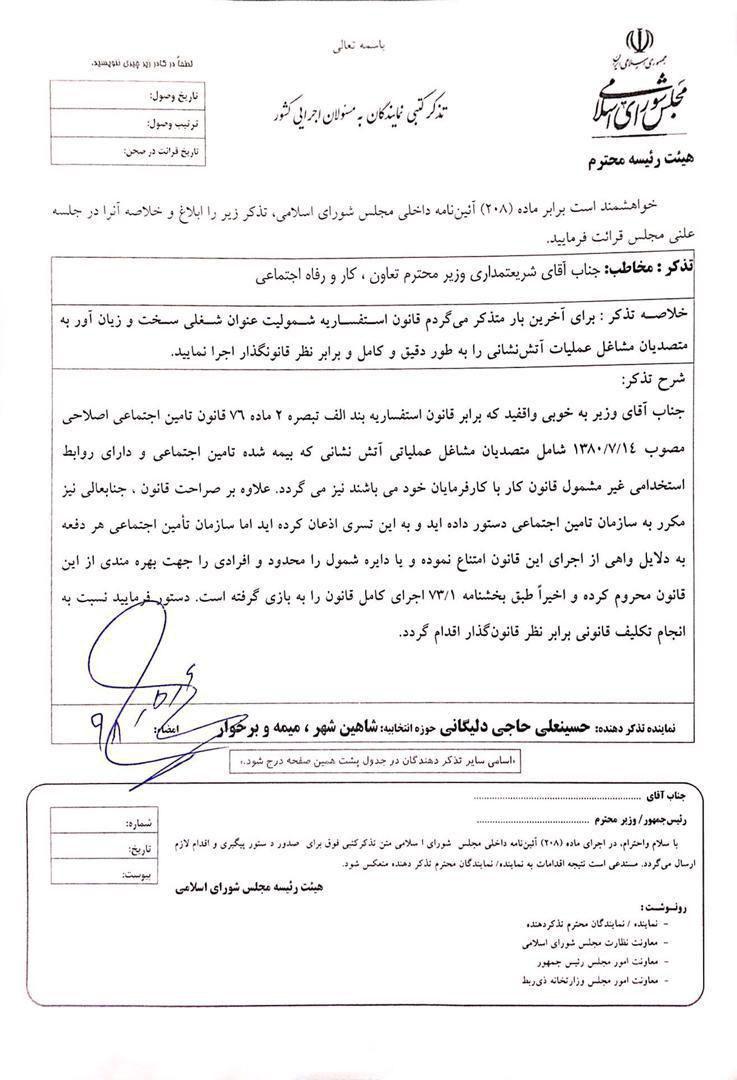 باسمه تعالی
جمهوری اسلامی ایران
مجلس شورای اسلامی
تذکر کتبی نمایندگان به مسئولان اجرایی کشور
لطفاً در کادر زیر چیزی ننویسید.
تاریخ وصول:
ترتیب وصول:
تاریخ قرائت در صحن:
هیئت رئیسه محترم
خواهشمند است برابر ماده (۲۰۸) آئین‌نامه داخلی مجلس شورای اسلامی، تذکر زیر را ابلاغ و خلاصه آنرا در جلسه
علنی مجلس قرائت فرمایید.
تذکر : مخاطب: جناب آقای شریعتمداری وزیر محترم تعاون ، کار و رفاه اجتماعی
خلاصه تذکر : برای آخرین بار متذکر می‌گردم قانون استفساریه شمولیت عنوان شغلی سخت و زیان آور به
متصدیان مشاغل عملیات آتش‌نشانی را به طور دقیق و کامل و برابر نظر قانونگذار اجرا نمایید.
شرح تذکر:
جناب آقای وزیر به خوبی واقفید که برابر قانون استفساریه بند الف تبصره ۲ ماده ۷۶ قانون تامین اجتماعی اصلاحی
مصوب ۱۳۸۰/۷/۱٤ شامل متصدیان مشاغل عملیاتی آتش نشانی که بیمه شده تامین اجتماعی و دارای روابط
استخدامی غیر مشمول قانون کار با کارفرمایان خود می باشند نیز می گردد. علاوه بر صراحت قانون ، جنابعالی نیز
مکرر به سازمان تامین اجتماعی دستور داده اید و به این تسری اذعان کرده اید اما سازمان تأمین اجتماعی هر دفعه
به دلایل واهی از اجرای این قانون امتناع نموده و یا دایره شمول را محدود و افرادی را جهت بهره مندی از این
قانون محروم کرده و اخیراً طبق بخشنامه ۷۳/۱ اجرای کامل قانون را به بازی گرفته است. دستور فرمایید نسبت به
انجام تکلیف قانونی برابر نظر قانون‌گذار اقدام گردد.
نماینده تذکر دهنده: حسینعلی حاجی دلیگانی حوزه انتخابیه: شاهین شهر ، میمه و برخوار امضاء:
«اسامی سایر تذکر دهندگان در جدول پشت همین صفحه درج شود.»
جناب آقای ........................................
رئیس‌جمهور/ وزیر محترم ..............................
شماره:
تاریخ:
پیوست:
با سلام واحترام، در اجرای ماده (۲۰۸) آئین‌نامه داخلی مجلس شورای ا سلامی متن تذکرکتبی فوق برای صدور د ستور پیگیری و اقدام لازم
ارسال می‌گردد. مستدعی است نتیجه اقدامات به نماینده/ نمایندگان محترم تذکر دهنده منعکس شود.
هیئت رئیسه مجلس شورای اسلامی
رونوشت:
- نماینده / نمایندگان محترم تذکردهنده
- معاونت نظارت مجلس شورای اسلامی
- معاونت امور مجلس رئیس جمهور
- معاونت امور مجلس وزارتخانه ذی‌ربط